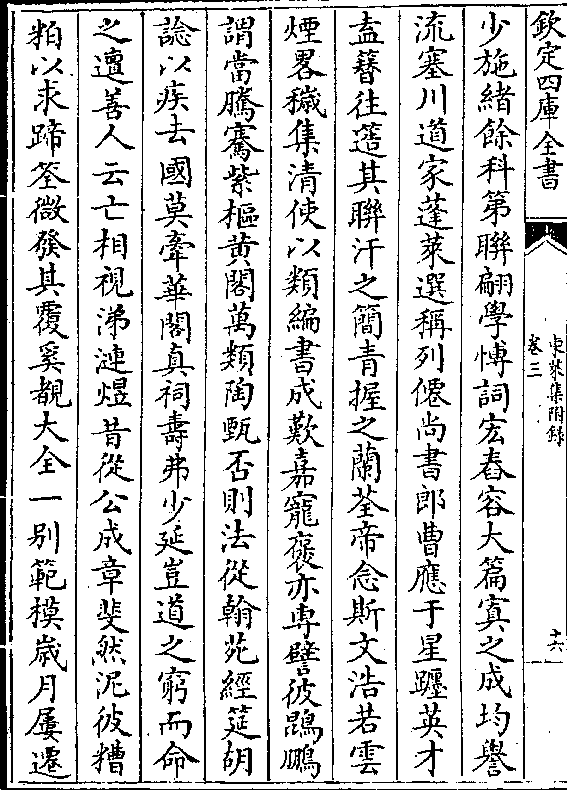 欽定四庫全書
東萊集附録
卷三
十六
少施緒餘科第聯翩學愽詞宏舂容大篇寘之成均譽
流塞川道家蓬萊選稱列僊尚書郎曹應于星躔英才
盍簪往簉其聯汗之簡青握之蘭荃帝念斯文浩若雲
煙畧穢集清使以類編書成歎嘉寵褒亦専譬彼鵾鵬
謂當騰騫紫樞黄閣萬類陶甄否則法從翰苑經筵胡
諗以疾去國莫牽華閣真祠壽弗少延豈道之窮而命
之邅善人云亡相視涕漣煜昔從公成章斐然泥彼糟
粕以求蹄筌微發其覆奚覩大全一别範模嵗月屢遷